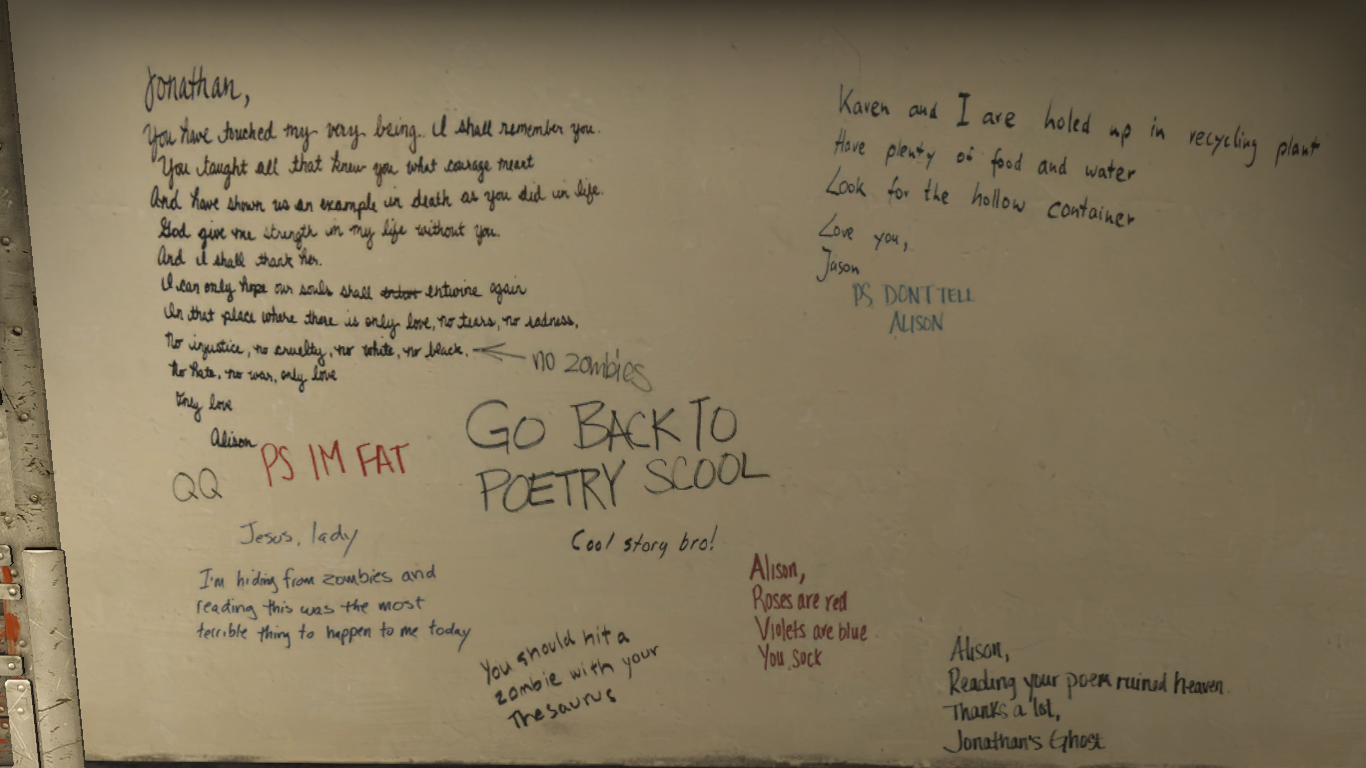 Jonathan,
You have touched my very being. I shall remember you.
You taught all that knew you what courage meant
And have shown us an example in death as you did in life.
God give me strength in my life without you.
And I shall thank her.
I can only hope our souls shall entwine again
In that place where there is only love, no tears, no sadness,
No injustice, no cruelty, no white, no black.
No hate, no war, only love
Only love
Alison
no zombies
PS IM FAT
QQ
GO BACK TO
POETRY SCOOL
Jesus, lady
I'm hiding from zombies and
reading this was the most
terrible thing to happen to me today
Cool story bro!
You should hit a
zombie with your
Thesaurus
Karen and I are holed up in recycling plant
Have plenty of food and water
Look for the hollow container
Love you,
Jason
PS DONT TELL
ALISON
Alison,
Roses are red
Violets are blue
You suck
Alison,
Reading your poem ruined heaven.
Thanks a lot,
Jonathan's Ghost